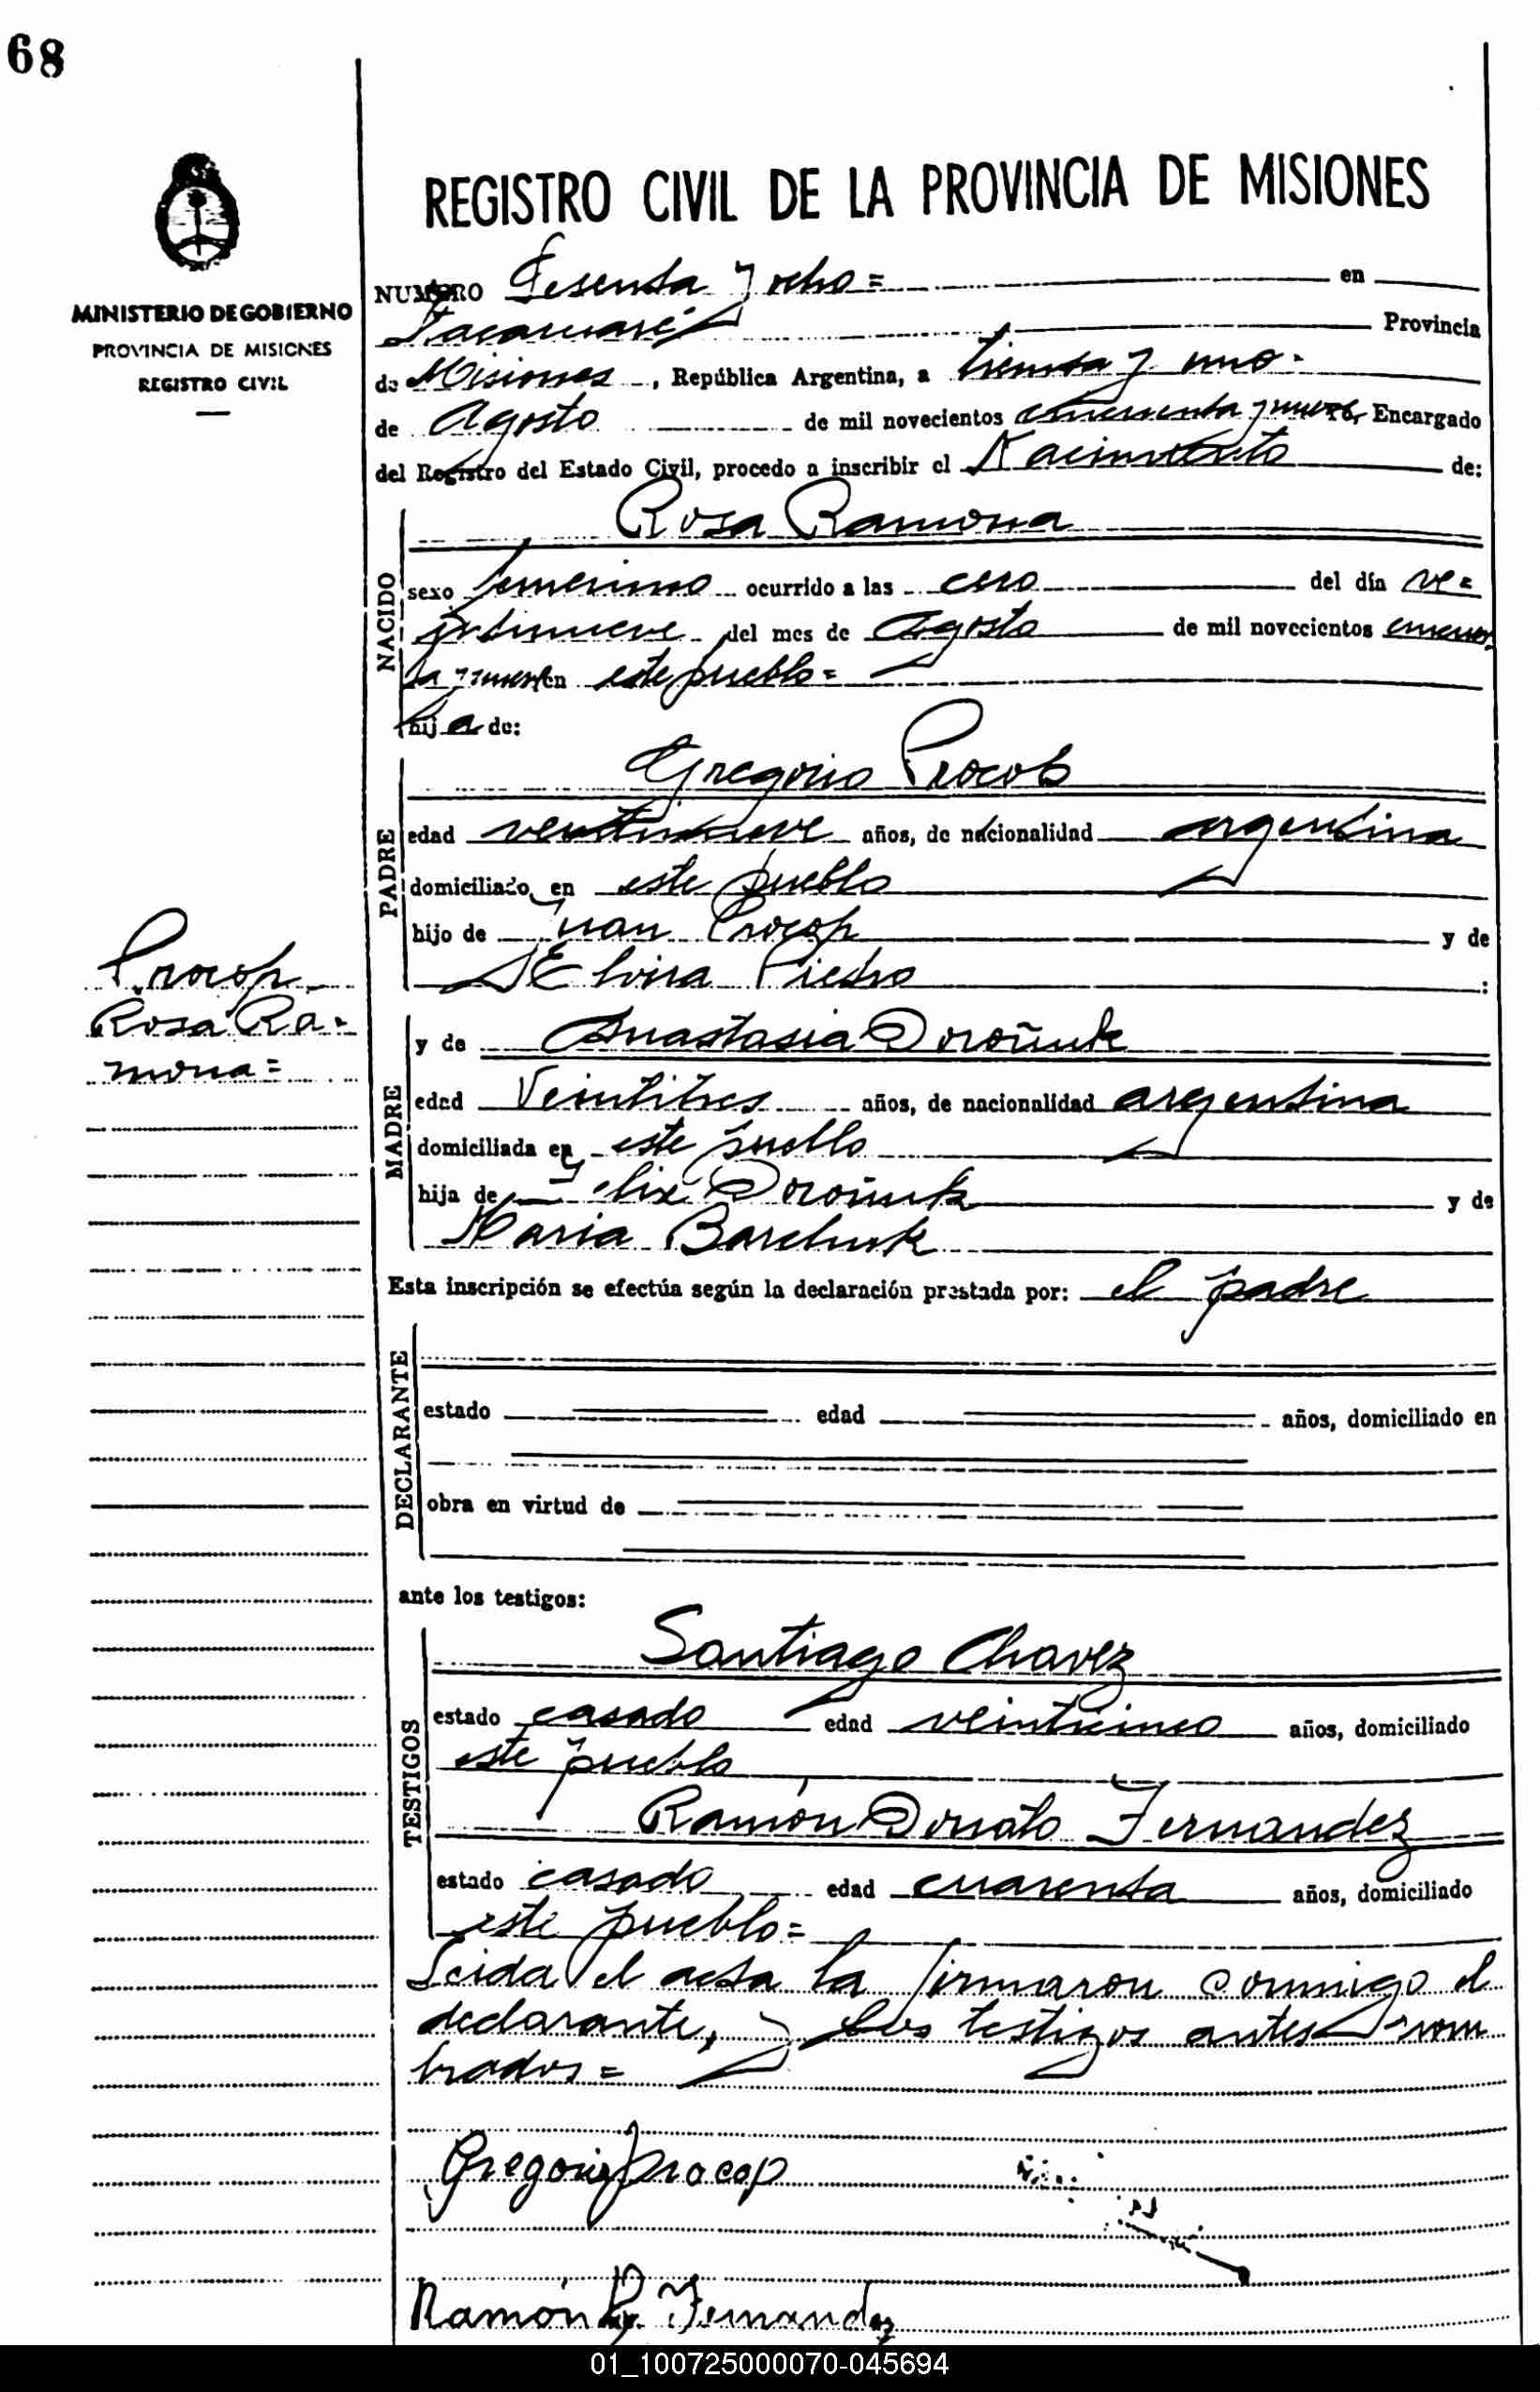 68
REGISTRO CIVIL DE LA PROVINCIA DE MISIONES
MINISTERIO DE GOBIERNO
PROVINCIA DE MISIONES
REGISTRO CIVIL
NUMERO Sesenta y ocho = en
Provincia
de Misiones, República Argentina, a treinta y uno.
de Agosto de mil novecientos cincuenta y nueve, Encargado
del Registro del Estado Civil, procedo a inscribir el Nacimiento de:
Rosa Ramona
NACIDO
sexo femenino ocurrido a las cero del día ve=
intinueve del mes de Agosto de mil novecientos cincuen
ta y nueve en este pueblo=
hija de:
Gregorio Procob
PADRE
edad veintinueve años, de nacionalidad argentina
domiciliado en este pueblo
hijo de Juan Procop y de
Elvira Piedro :
Procop
Rosa Ra=
mona=
y de Anastasia Doroñuk
MADRE
edad Veintitres años, de nacionalidad argentina
domiciliada en este pueblo
hija de Felix Doroñuk y de
Maria Barchuk
Esta inscripción se efectúa según la declaración prestada por: el padre
DECLARANTE
estado edad años, domiciliado en
obra en virtud de
ante los testigos:
Santiago Chavez
TESTIGOS
estado casado edad veinticinco años, domiciliado
este pueblo
Ramón Donato Fernandez
estado casado edad cuarenta años, domiciliado
este pueblo=
Leida el acta la firmaron conmigo el
declarante, y los testigos antes nom
brados=
Gregorio Procop
Ramón D. Fernandez
01_100725000070-045694